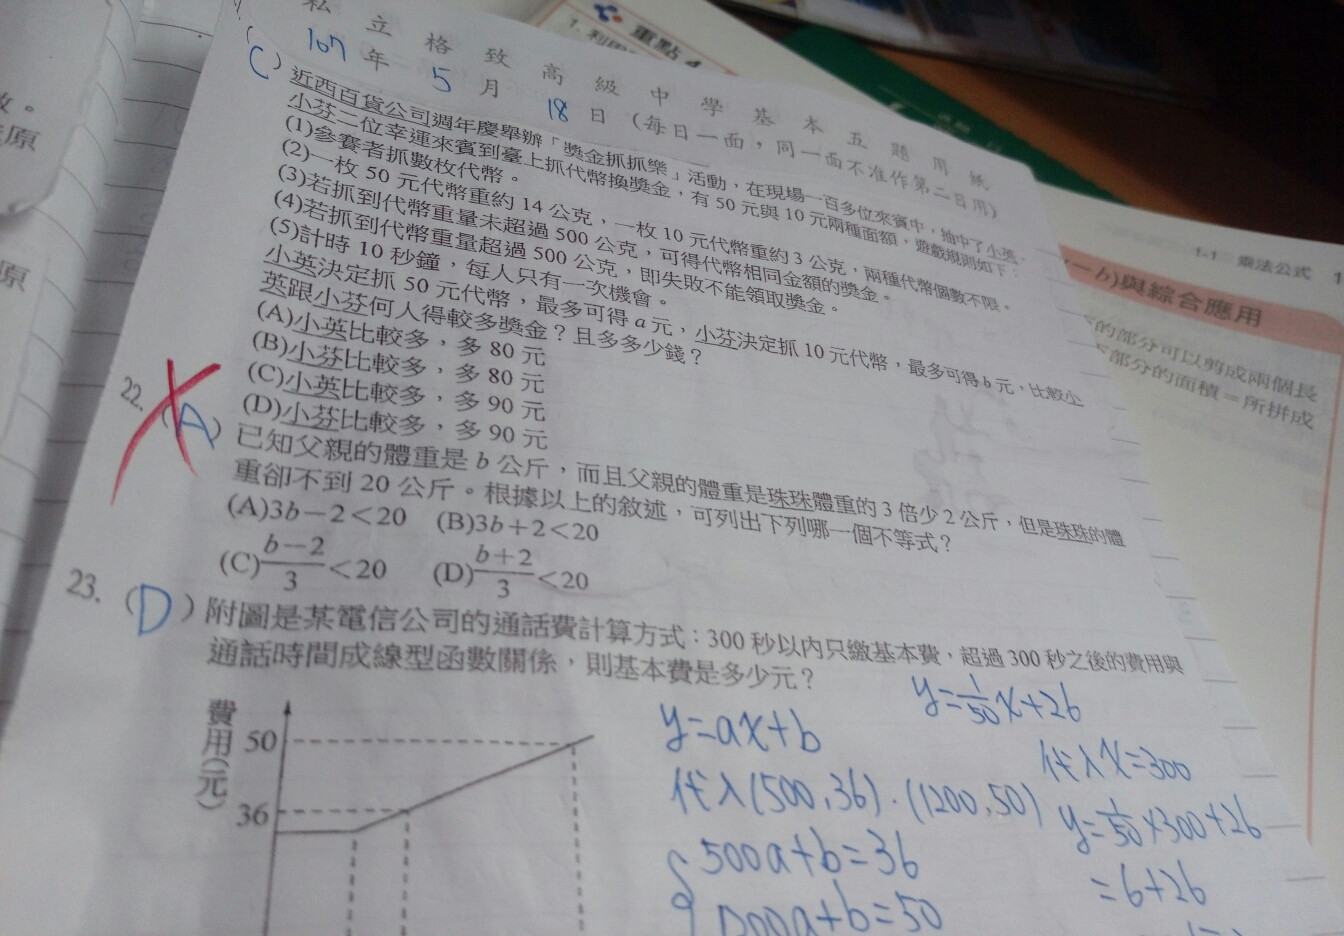 私立格致高級中學基本五題用紙
107年5月18日(每日一面,同一面不准作第二日用)
(C)近西百貨公司週年慶舉辦「獎金抓抓樂」活動,在現場一百多位來賓中,抽中了小英、
小芬二位幸運來賓到臺上抓代幣換獎金,有50元與10元兩種面額,遊戲規則如下:
(1)參賽者抓數枚代幣。
(2)一枚50元代幣重約14公克,一枚10元代幣重約3公克,兩種代幣個數不限。
(3)若抓到代幣重量未超過500公克,可得代幣相同金額的獎金。
(4)若抓到代幣重量超過500公克,即失敗不能領取獎金。
(5)計時10秒鐘,每人只有一次機會。
小英決定抓50元代幣,最多可得a元,小芬決定抓10元代幣,最多可得b元,比較小
英跟小芬何人得較多獎金?且多多少錢?
(A)小英比較多,多80元
(B)小芬比較多,多80元
(C)小英比較多,多90元
(D)小芬比較多,多90元
22. (A)已知父親的體重是b公斤,而且父親的體重是珠珠體重的3倍少2公斤,但是珠珠的體
重卻不到20公斤。根據以上的敘述,可列出下列哪一個不等式?
(A)3b−2<20 (B)3b+2<20
(C)\frac{b−2}{3}<20 (D)\frac{b+2}{3}<20
23. (D)附圖是某電信公司的通話費計算方式:300秒以內只繳基本費,超過300秒之後的費用與
通話時間成線型函數關係,則基本費是多少元?
費用(元)
50
36
y=ax+b
代入(500,36).(1200,50)
500a+b=36
1200a+b=50
y=\frac{1}{50}x+26
代入x=300
y=\frac{1}{50}×300+26
=6+26
重點4
1-1 乘法公式
−b)與綜合應用
的部分可以剪成兩個長
部分的面積=所拼成
原
原